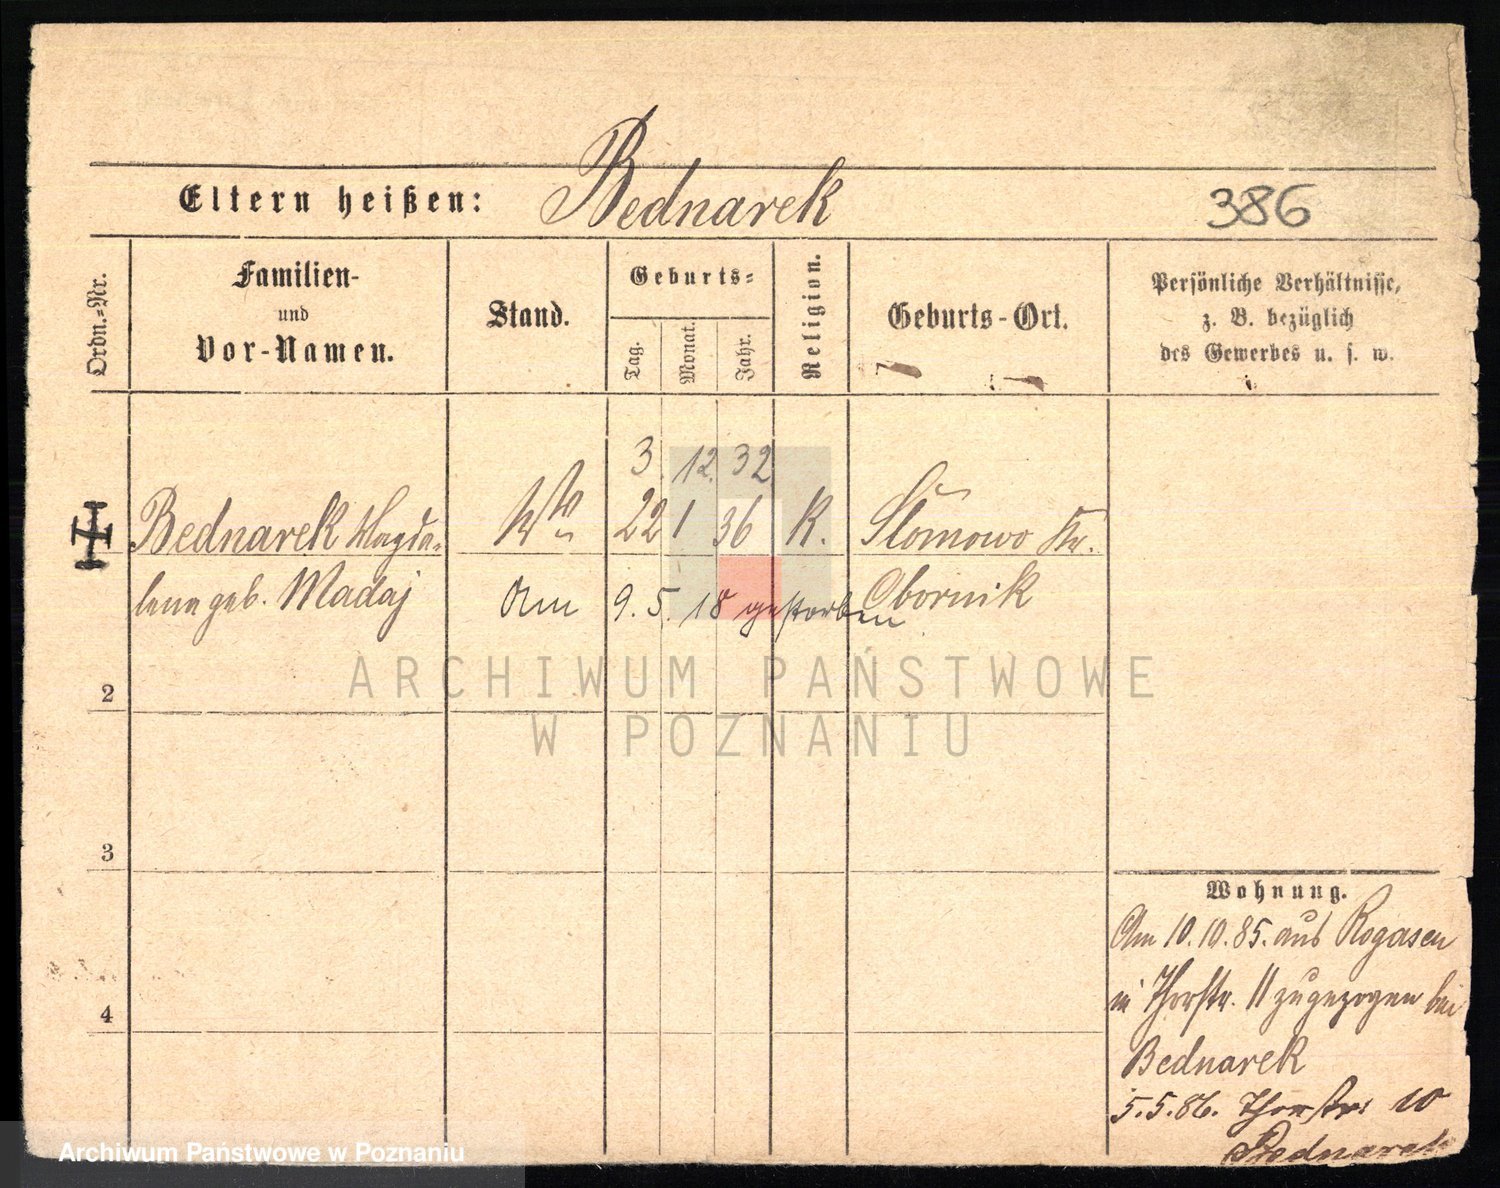 Eltern heißen: Bednarek 386
Ordn.-Nr.
Familien-
und
Vor-Namen.
Stand.
Geburts-
Tag.
Monat.
Jahr.
Religion.
Geburts-Ort.
Persönliche Verhältnisse,
z. B. bezüglich
des Gewerbes u. s. w.
3. 12. 32
Bednarek Magda- Ww 22 1 36 K. Słomowo Kr.
lena geb. Madaj Am 9. 5. 18 gestorben Obornik
ARCHIWUM PAŃSTWOWE
W POZNANIU
2
3
4
Wohnung.
Am 10.10.85. aus Rogasen
in Thorstr. 11 zugezogen bei
Bednarek
5.5.86. Thorstr. 10
Bednarek
Archiwum Państwowe w Poznaniu